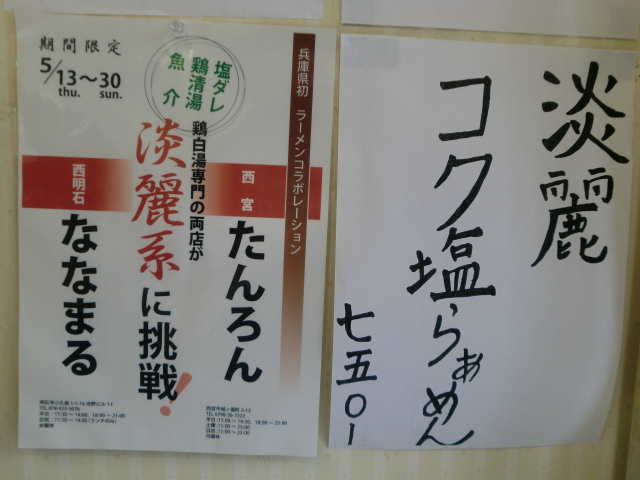 期間限定
5/13～30
thu. sun.
塩ダレ
鶏清湯
魚介
兵庫県初 ラーメンコラボレーション
鶏白湯専門の両店が
淡麗系に挑戦!
西宮
たんろん
西明石
ななまる
淡麗
コク塩らぁめん
七五〇ー